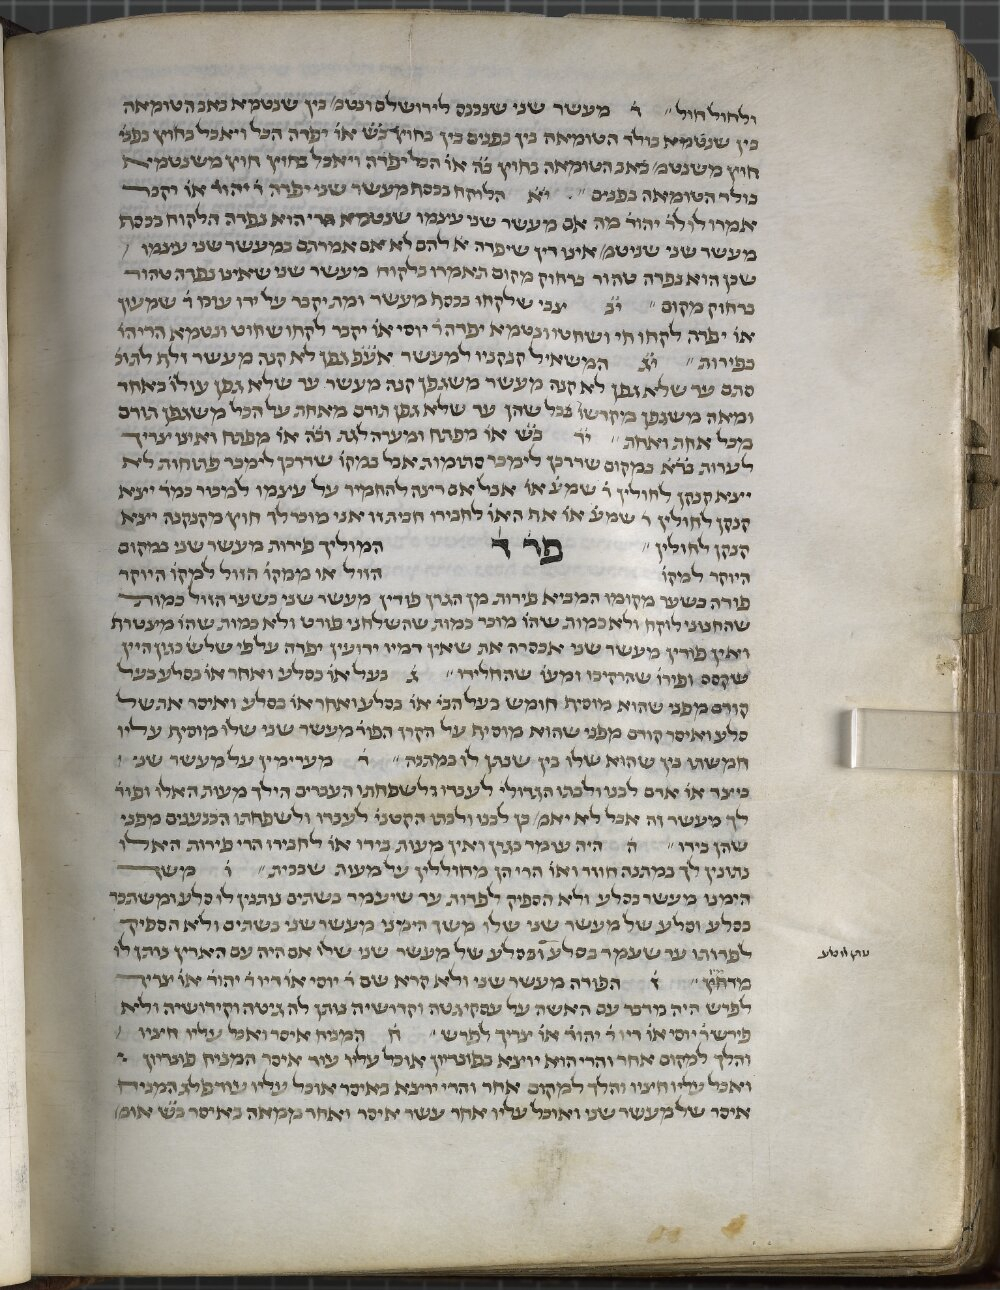 ולחול חול״ ר̇ מעשר שני שנכנס לירושלם ונטמ׳ בין שנטמא באב הטומאה
בין שנטמא בולד הטומאה בין בפנים בין בחוץ בׄשׄ או׳ יפדה הכל ויאכל בחוץ בפני׳
חוץ משנטמ׳ באב הטומאה בחוץ בׄהׄ או׳ הכל יפדה ויאכל בחוץ חוץ משנטמא
בולד הטומאה בפנים ״ יׄאׄ הלוקח בכסף מעשר שני יפדה ר׳ יהוד׳ או׳ יקבר
אמרו לו לר׳ יהוד׳ מה אם מעשר שני עינמו שנטמא הרי הוא נפדה הלקוח בכסף
מעשר שני שניטמ׳ אינו דין שיפדה א׳ להם לא אם אמרתם במעשר שני עינמו
שכן הוא נפדה טהור ברחוק מקום תאמרו בלקוח מעשר שני שאינו נפדה טהור
ברחוק מקום ״ יׄבׄ צבי שלקחו בכסף מעשר ומת יקבר על ידי עורו ר׳ שמעון
או׳ יפדה לקחו חי ושחטו ונטמא יפדה ר׳ יוסי או׳ יקבר לקחו שחוט ונטמא הרי הו׳
כפירות ״ יׄגׄ המשאיל קנקניו למעשר אׄעׄפׄ גפן לא קנה מעשר זלף לתוכ׳
סתם עד שלא גפן לא קנה מעשר משגפן קנה מעשר עד שלא גפן עולו׳ באחד
ומאה משגפן מיקדשו׳ בכל שהן עד שלא גפן תורם מאחת על הכל משגפן תורם
מכל אחת ואחת ״ יׄדׄ בׄשׄ או׳ מפתח ומערה לגת ובׄהׄ או׳ מפתח ואינו צריך
לערות בׄדׄאׄ במקום שדרכן לימכר סתומות אבל במקו׳ שדרכן לימכר פתוחות לא
ייצא קנקן לחולין ר׳ שמע׳ או׳ אבל אם רוצה להחמיר על עינמו למכור במד׳ ייצא
קנקן לחולין ר׳ שמע׳ או׳ אף האו׳ לחבירו חבית זו אני מוכר לך חוץ מקנקנה ייצא
קנקן לחולין ״ פר׳ ד המוליך פירות מעשר שני במקום
היוקר למקו׳ הזול או ממקו׳ הזול למקו׳ היוקר
פודה כשער מקומו המביא פירות מן הגרן פודין מעשר שני כשער הזול כמות
שהחנוני לוקח ולא כמות שהו׳ מוכר כמות שהשלחני פורט ולא כמות שהו׳ מיצטרף
ואין פודין מעשר שני אכסרה את שאין דמיו ידועין יפדה על פי שלש כגון היין
שקסס ופירו׳ שהרקיבו ומעו׳ שהחלידו ״ ג̇ בעל או׳ בסלע ואחר או׳ בסלע בעל
קודם מפני שהוא מוסיף חומש בעל הבי׳ או׳ בסלע ואחר או׳ בסלע ואיסר את של
סלע ואיסר קודם מפני שהוא מוסיף על הקרן הפוד׳ מעשר שני שלו מוסיף עליו
חמשתו בין שהוא שלו בין שנתן לו במתנה ״ ד̇ מערימין על מעשר שני
כיצד או׳ אדם לבנו ולבתו הגדולי׳ לעבדו ולשפחתו העברים הילך מעות האלו ופוד׳
לך מעשר זה אבל לא יאמ׳ כן לבנו ולבתו הקטנו׳ לעבדו ולשפחתו הכנענים מפני
שהן כידו ״ ה̇ היה עומד בגרן ואין מעות בידו או׳ לחבירו הרי פירות האלו
נתונין לך במתנה חוזר ואו׳ הרי הן מחוללין על מעות שבבית ״ ו̇ משך
הימנו מעשר בסלע ולא הספיק לפדות עד שיעמד בשתים נותנין לו סלע ומשתכר
בסלע וסלע של מעשר שני שלו משך הימנו מעשר שני בשתים ולא הספיק
לפדותו עד שעמד בסלע ובסלע של מעשר שני שלו אם היה עם הארץ נותן לו
מדמיו ״ ז̇ הפודה מעשר שני ולא קרא שם ר׳ יוסי או׳ דיו ר׳ יהוד׳ או׳ צריך
לפרש היה מדבר עם האשה על עסקי גטה וקדושיה נותן לה גיטה וקידושיה ולא
פירש ר׳ יוסי או׳ דיו ר׳ יהוד׳ או׳ צריך לפרש ״ ח̇ המניח איסר ואכל עליו חיציו
והלך למקום אחר והרי הוא יוצא בפונדיון אוכל עליו עוד איסר המניח פונדיון
ואכל עליו חיציו והלך למקום אחר והרי יוצא באיסר אוכל עליו עוד פלג המניח
איסר של מעשר שני ואוכל עליו אחד עשר איסר ואחד ממאה באיסר בׄשׄ אומ׳